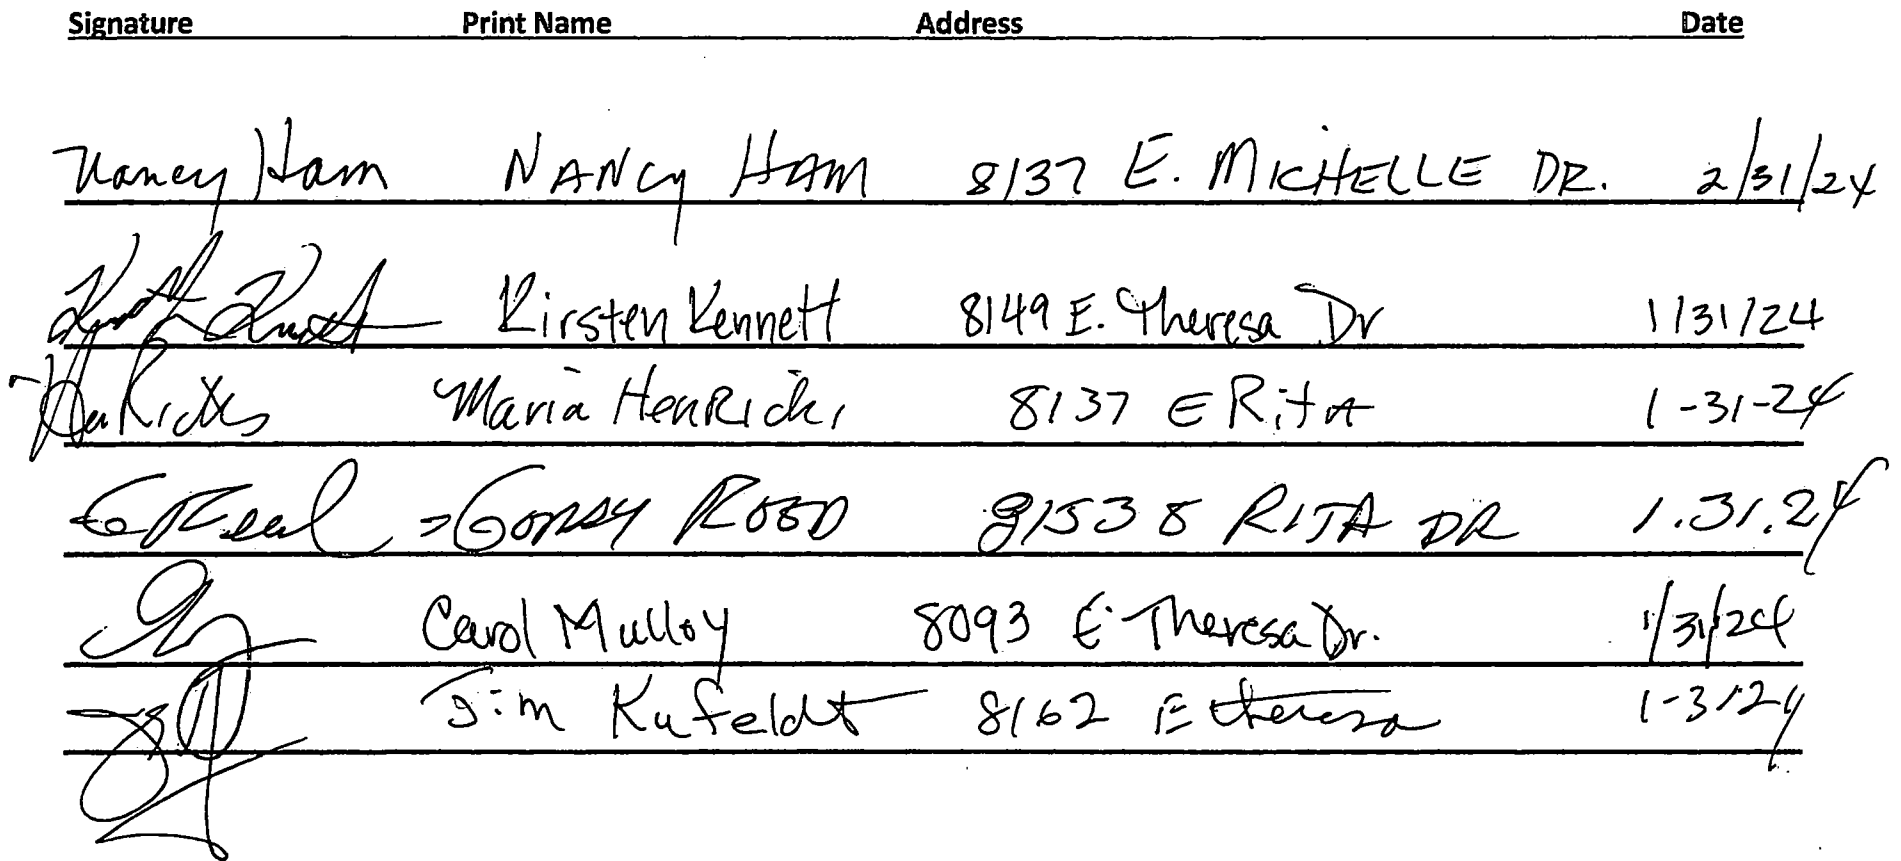 Signature Print Name Address Date
Nancy Ham NANCY HAM 8137 E. MICHELLE DR. 2/31/24
Kirsten Kennett 8149 E. Theresa Dr 1/31/24
HenRicks Maria HenRicks 8137 E RitA 1-31-24
ROOD 8153 E RITA DR 1.31.24
Carol Mulloy 8093 E Theresa Dr. 1/31/24
Jim Kufeldt 8162 E theresa 1-31-24